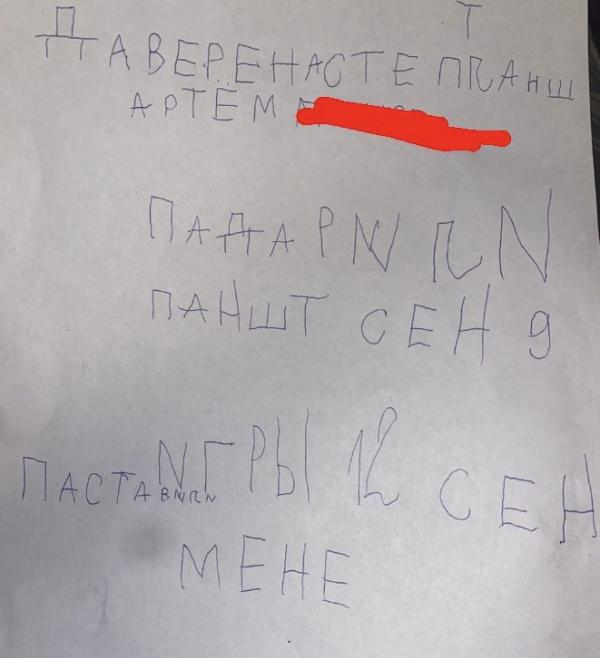 Т
ДАВЕРЁНАСТЕ ПЛАНШ
АРТЁМ
ПАДАРИЛИ
ПАНШТ СЕН 9
ПАСТАВИЛИ ИГРЫ 12 СЕН
МЕНЕ